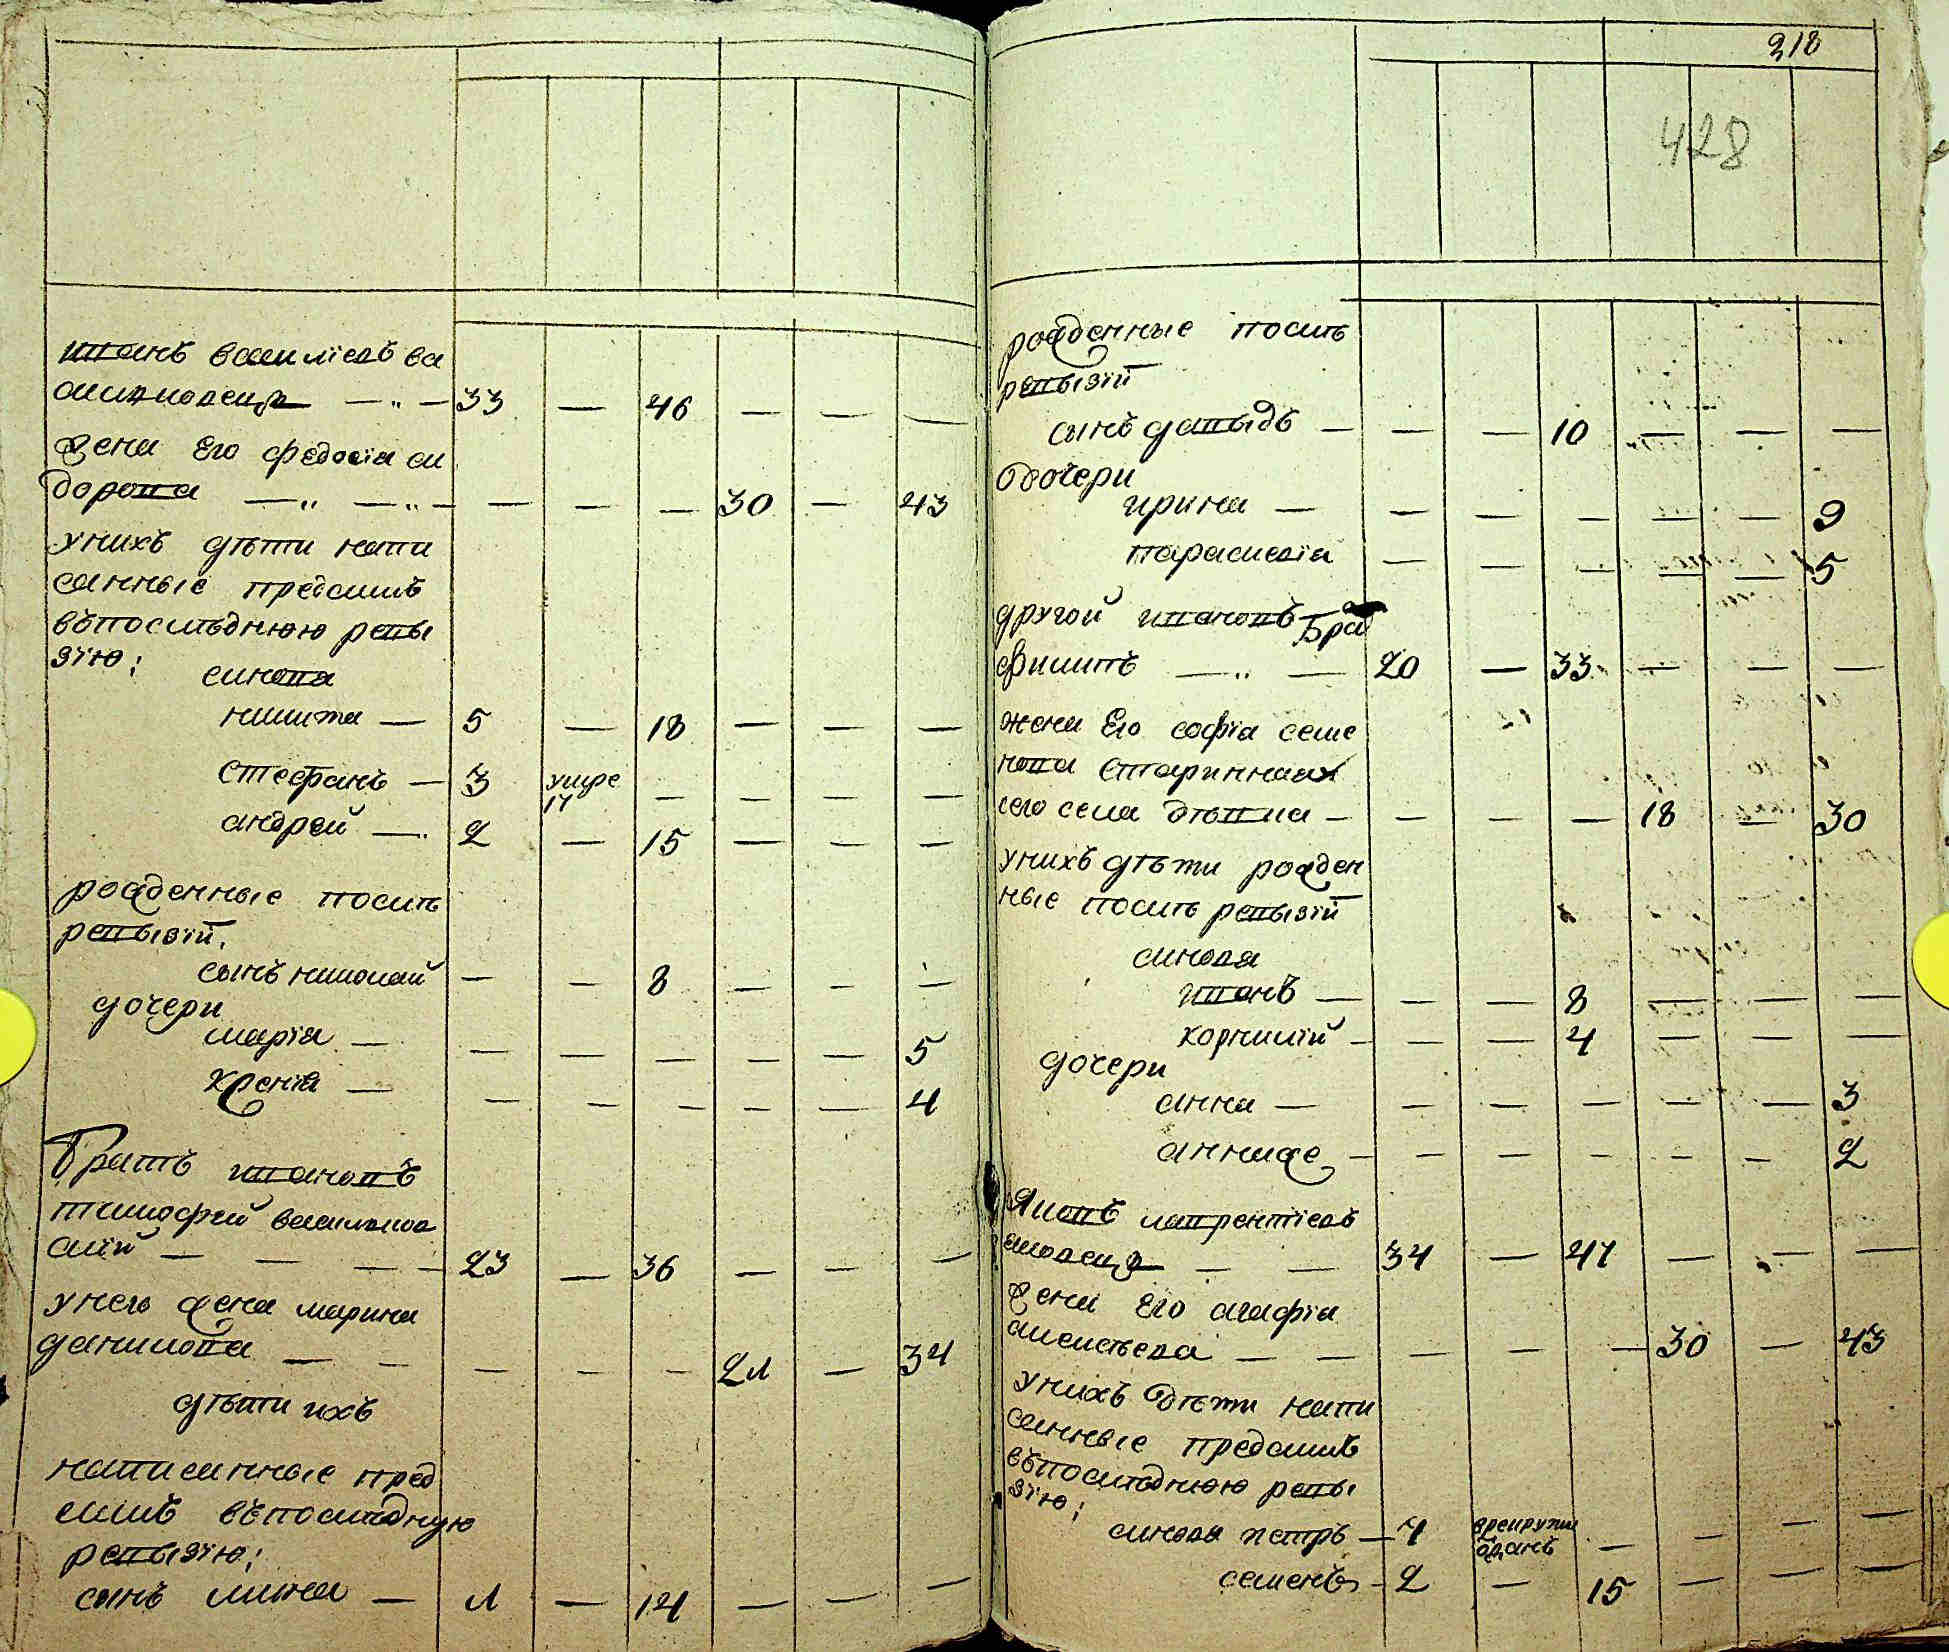 иванъ василiевъ ва
силковецъ — „ — 33 — 46 — — —
жена Его федосiа си
дорова — „ — „ — — — — 30 — 43
унихъ дѣти напи
санные предсимъ
въпослѣднюю ревы
зїю;
синова
никита — 5 — 18 — — —
стефанъ — 3 умре 14 — — — —
андрей — 2 — 15 — — —
рожденные послѣ
ревызїй.
сынъ николай — — 8 — — —
дочери
марїа — — — — — — 5
ксенїа — — — — — — 4
Братъ ивановъ
тимофей василиов
скїй — — — — 23 — 36 — — —
унего жена марина
данилова — — — — — 21 — 34
дѣти ихъ
написанные пред
симъ въпослѣдную
ревызїю;
сынъ лука — 1 — 14 — — —
218
428
рожденные послѣ
ревызїй
сынъ давыдъ — — — 10 — — —
дочери
ирина — — — — — — 9
параскевїа — — — — — 5
другой ивановъ Брат
филипъ — „ — 20 — 33 — — —
жена Его софїа семе
нова старинная
сего села дѣвка — — — — 18 — 30
унихъ дѣти рожден
ные послѣ ревызїй
синова
иванъ — — — 8 — — —
корнилїй — — — 4 — — —
дочери
анна — — — — — — 3
анна же — — — — — — 2
Яковъ лаврентїевъ
— — 34 — 47 — — —
жена Его агафїа
алексѣева — — — — — 30 — 43
унихъ дѣти напи
санные предсимъ
въпослѣднюю ревы
зїю;
синова петръ — 4 врекруты отданъ — — — —
семенъ — 2 — 15 — — —